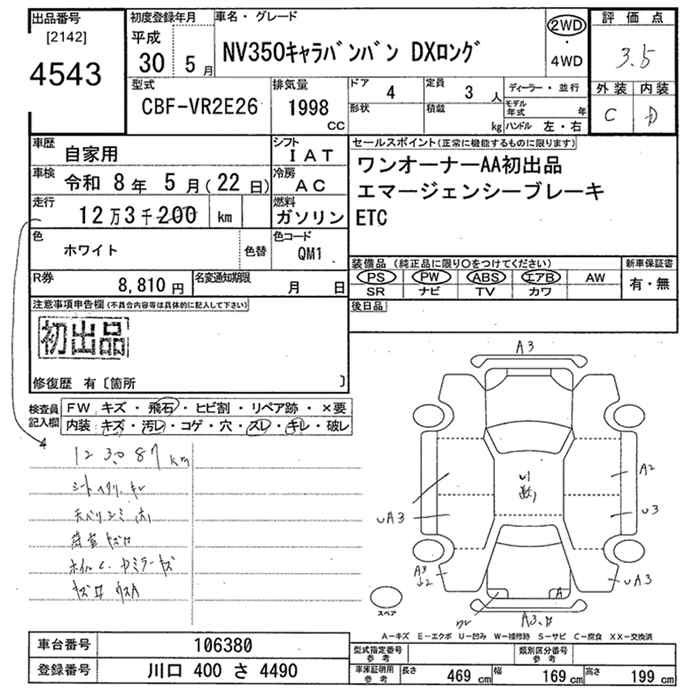 出品番号 初度登録年月 車名・グレード 2WD 評価点
[2142] 平成 ・ 3.5
4543 30 5月 NV350ｷｬﾗﾊﾞﾝバン DXﾛﾝｸﾞ 4WD
外装 内装
C D
型式 排気量 ドア 4 定員 3人 ディーラー・並行
CBF-VR2E26 1998 CC 形状 積載 kg モデル年式 年
ハンドル 左・右
車歴 自家用 シフト IAT セールスポイント(正常に機能するものに限ります)
車検 令和 8年 5月(22日) 冷房 AC ワンオーナーAA初出品
走行 12万3千200 km 燃料 ガソリン エマージェンシーブレーキ
ETC
色 ホワイト 色替 色コード QM1
R券 8,810円 名変通知期限 月 日
装備品(純正品に限り○をつけてください) 新車保証書
PS PW ABS エアB AW 有・無
SR ナビ TV カワ
注意事項申告欄(不具合内容等は具体的に記入して下さい) 後日品
初出品
修復歴 有〔箇所 〕
検査員記入欄 FW キズ・飛石・ヒビ割・リペア跡・×要
内装 キズ・汚レ・コゲ・穴・スレ・キレ・破レ
123087km
A3
A2
UA3
U3
A3
U2
UA3
A
スペア
A－キズ E－エクボ U－凹み W－補修跡 S－サビ C－腐食 XX－交換済
車台番号 106380 型式指定番号 参考 類別区分番号 参考
登録番号 川口 400 さ 4490 車庫証明用 参考 長さ 469cm 幅 169cm 高さ 199cm